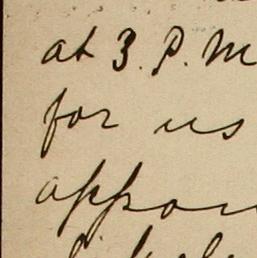 at 3. P. M
for us
appoin